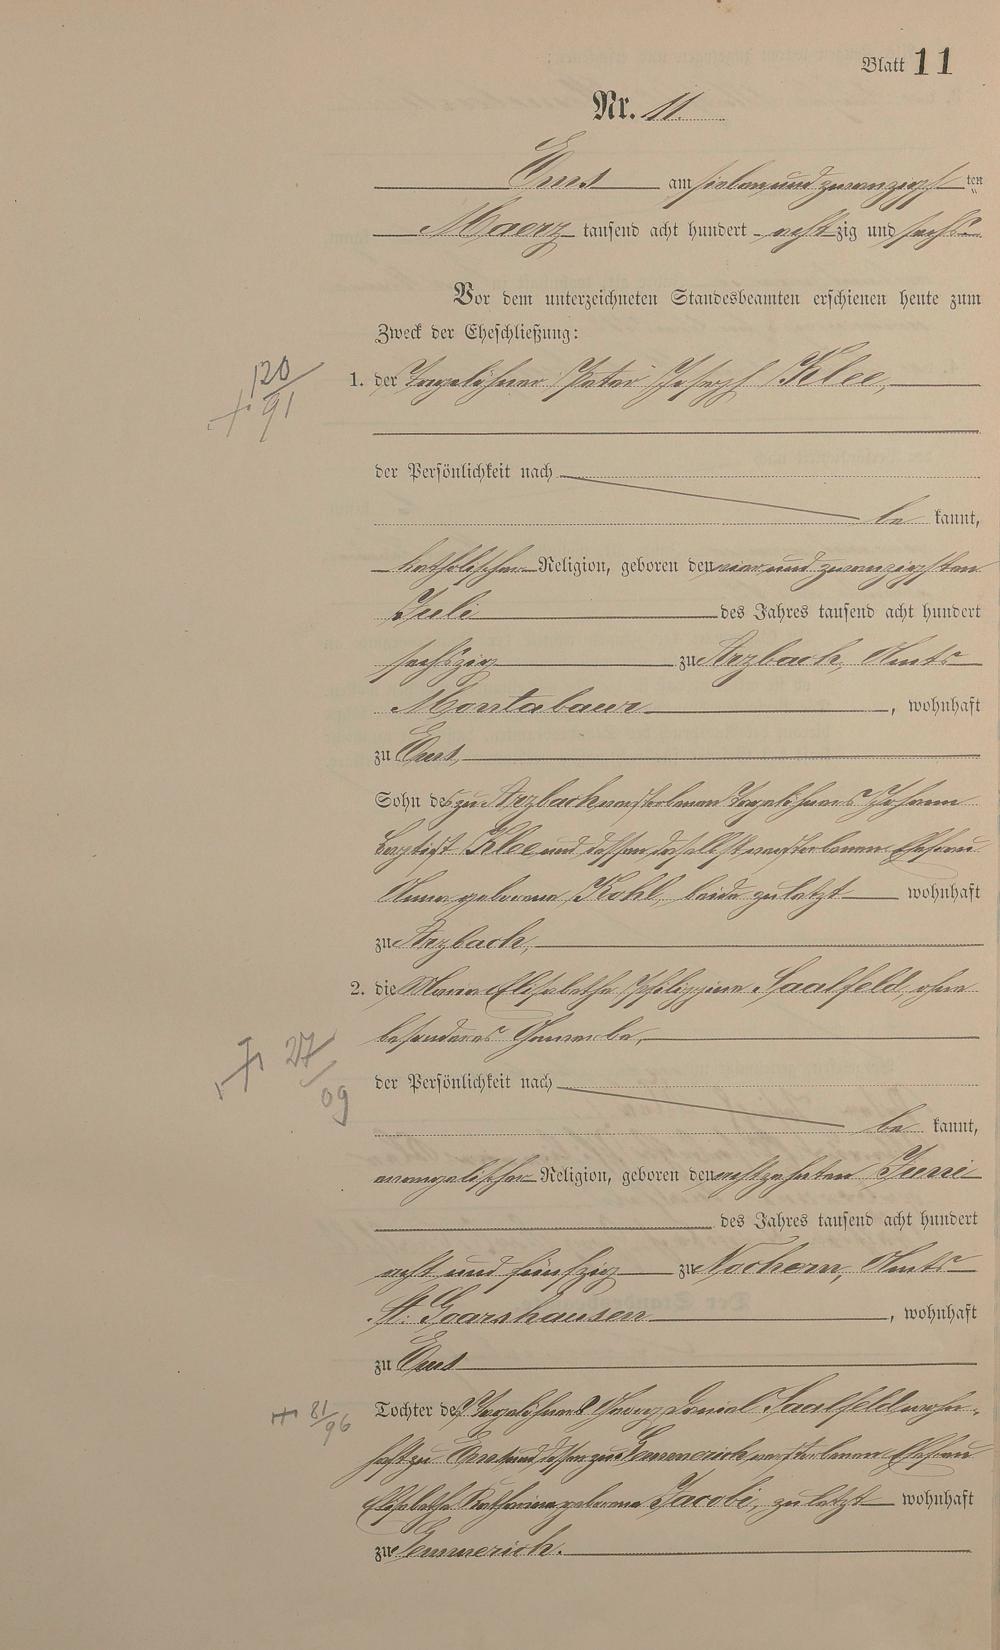 Blatt 11
Nr. 11.
Ems am sieben und zwanzigsten
Maerz tausend acht hundert achtzig und sechs
Vor dem unterzeichneten Standesbeamten erschienen heute zum
Zweck der Eheschließung:
120
+ 91
1. der Tagelöhner Peter Joseph Klee,
der Persönlichkeit nach
be kannt,
katholischer Religion, geboren den vier und zwanzigsten
Juli des Jahres tausend acht hundert
sechszig zu Arzbach, Amts
Montabaur, wohnhaft
zu Ems,
Sohn des zu Arzbach verstorbenen Tagelöhners Johann
Baptist Klee und dessen daselbst verstorbenen Ehefrau
Anna geborene Kohl, beide zuletzt wohnhaft
zu Arzbach,
2. die Maria Elisabetha Philippine Saalfeld, ohne
besonderes Gewerbe,
+ 27
09
der Persönlichkeit nach
be kannt,
evangelischer Religion, geboren den achtzehnten Juni
des Jahres tausend acht hundert
acht und fünfzig zu Nochern, Amts
St. Goarshausen, wohnhaft
zu Ems
+ 81
96
Tochter des Tagelöhners Georg Daniel Saalfeld wohn-
haft zu Ems und dessen zu Gemmerich verstorbenen Ehefrau
Elisabetha Katharina geborene Jacobi, zuletzt wohnhaft
zu Gemmerich.